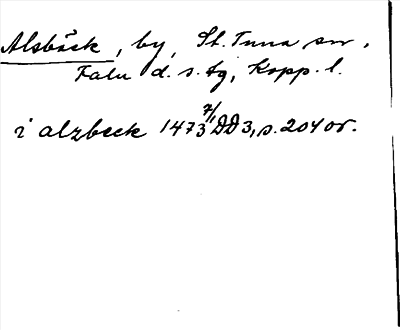 Alsbäck, by, St. Tuna sn,
Falu d. s. tg, Kopp. l.
i alzbeck 1473 7/1 DD 3, s. 204 or.